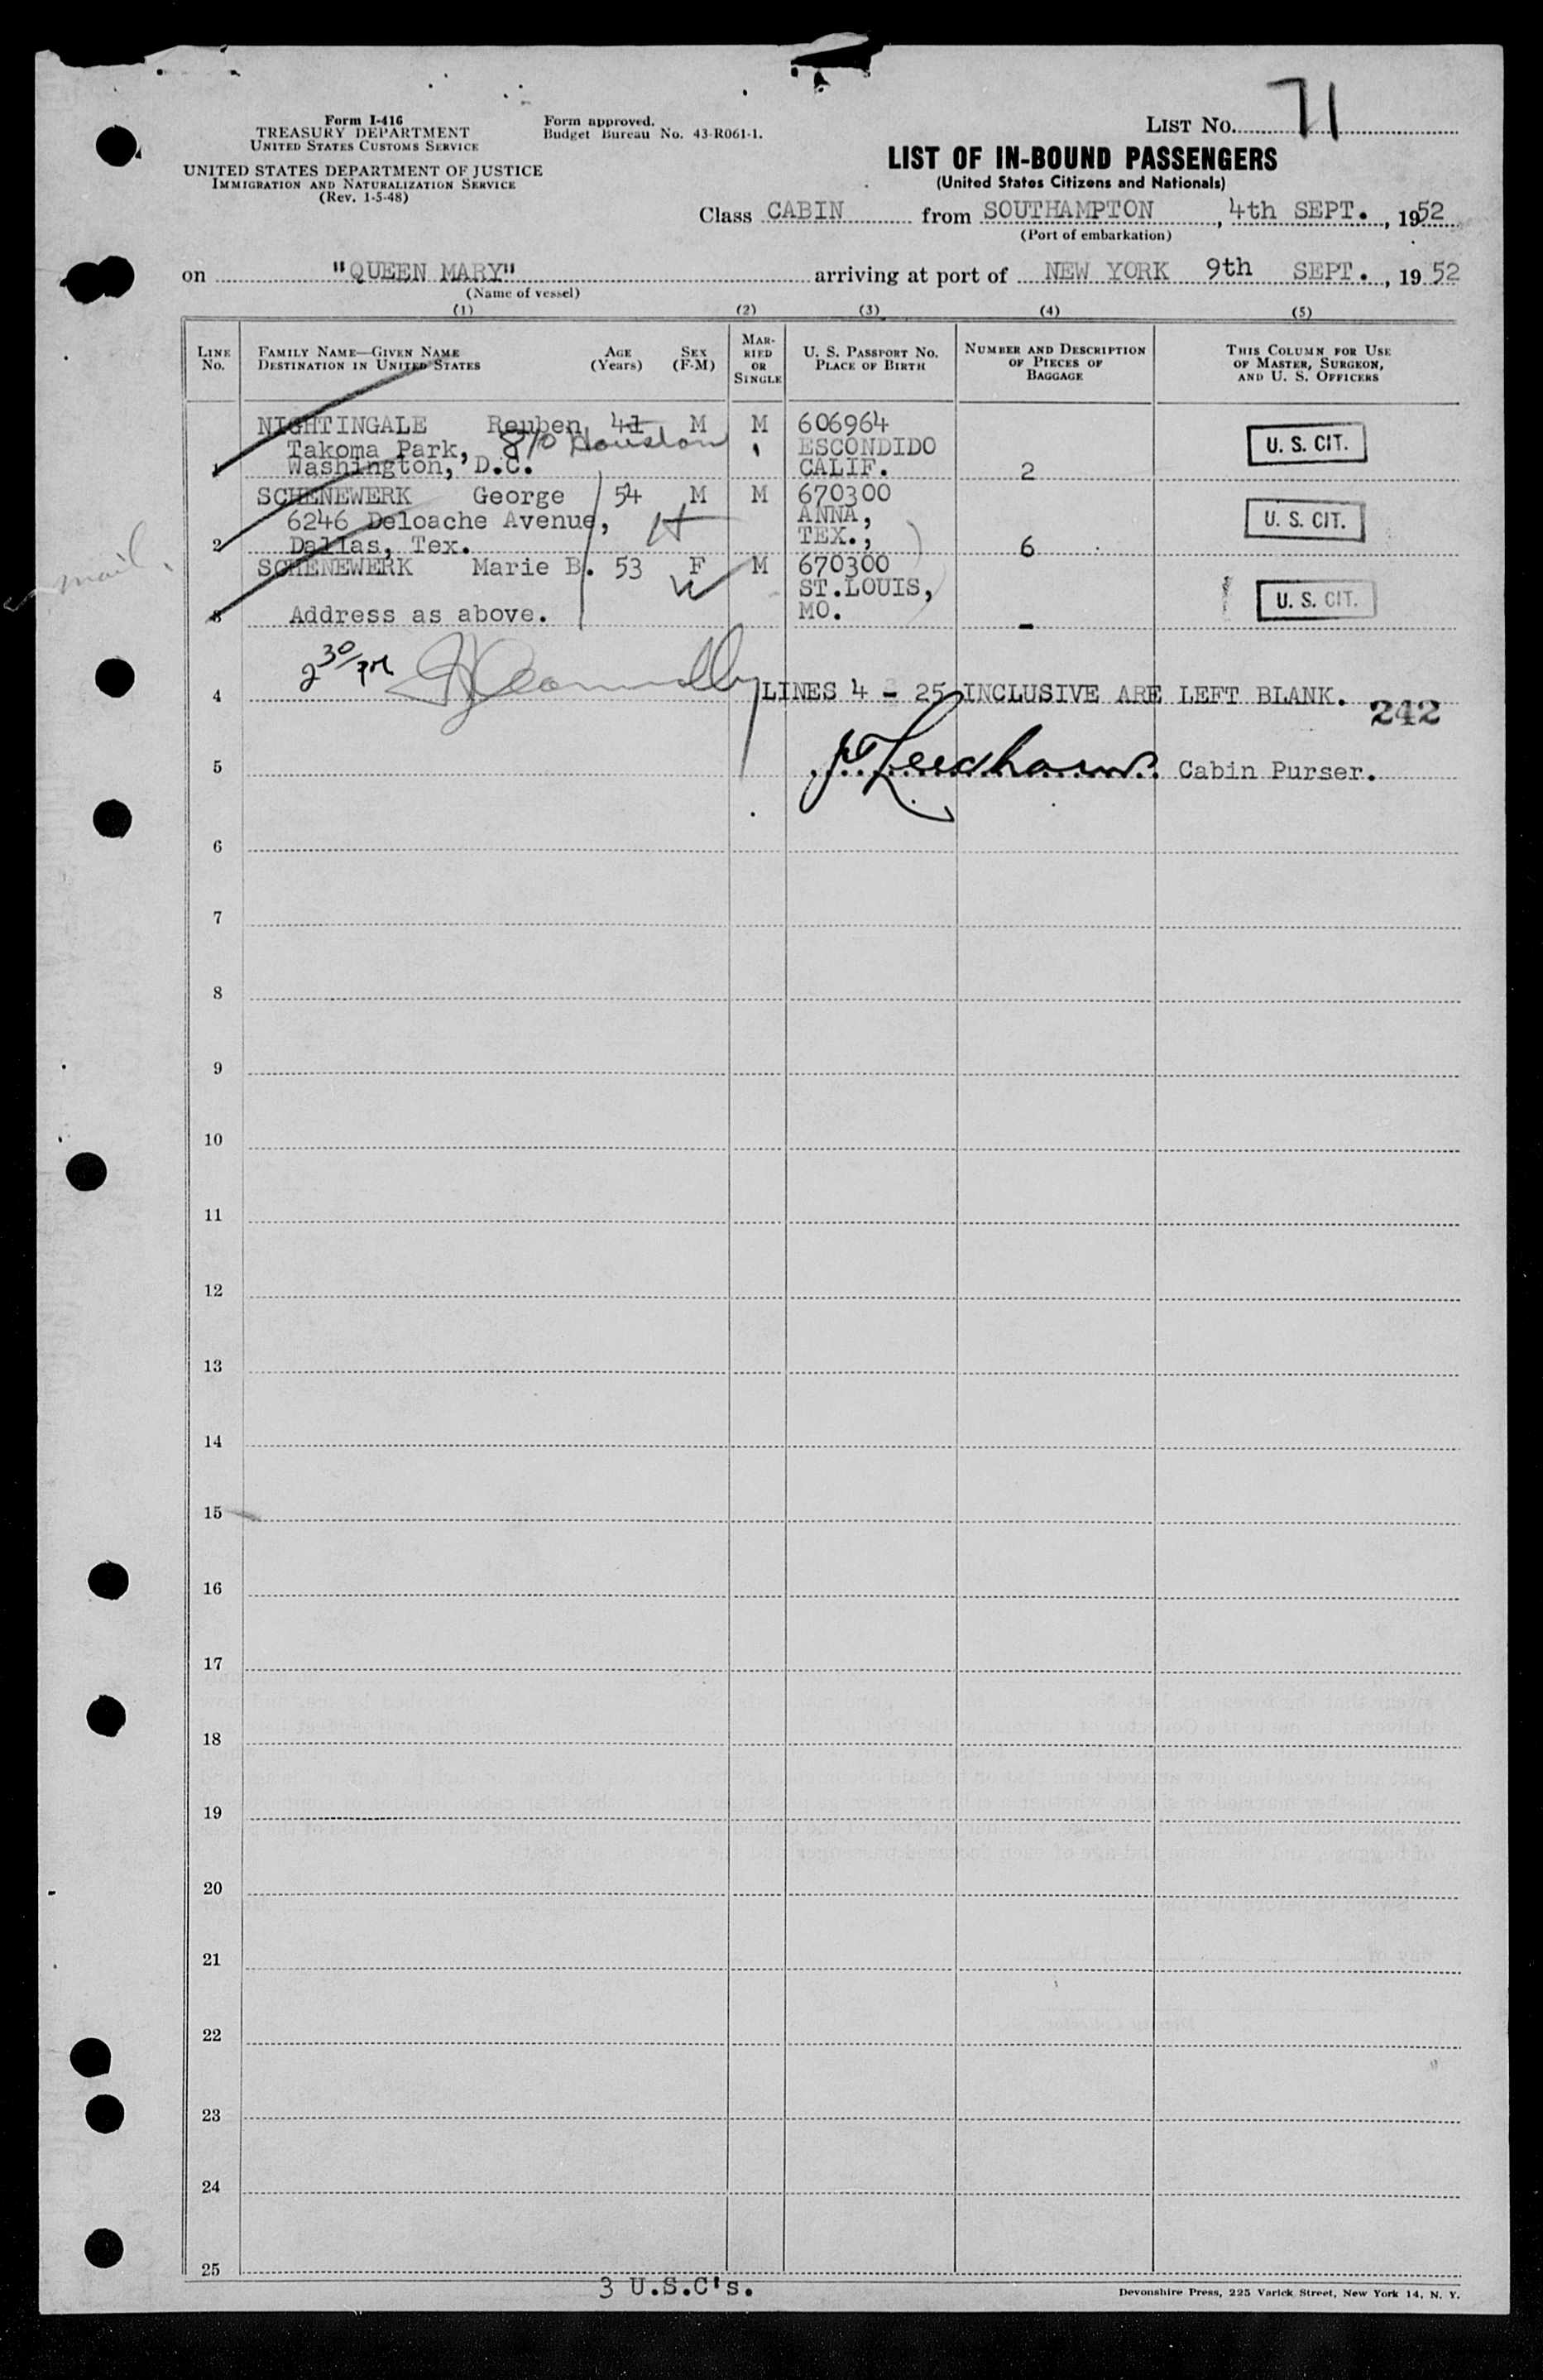 Form I-416
TREASURY DEPARTMENT
UNITED STATES CUSTOMS SERVICE
UNITED STATES DEPARTMENT OF JUSTICE
IMMIGRATION AND NATURALIZATION SERVICE
(Rev. 1-5-48)
Form approved.
Budget Bureau No. 43-R061-1.
LIST No. 71
LIST OF IN-BOUND PASSENGERS
(United States Citizens and Nationals)
Class CABIN from SOUTHAMPTON, 4th SEPT., 1952
(Port of embarkation)
on "QUEEN MARY" arriving at port of NEW YORK 9th SEPT., 1952
(Name of vessel)
(1) (2) (3) (4) (5)
LINE No.
FAMILY NAME—GIVEN NAME
DESTINATION IN UNITED STATES
AGE (Years)
SEX (F-M)
MARRIED OR SINGLE
U. S. PASSPORT NO.
PLACE OF BIRTH
NUMBER AND DESCRIPTION OF PIECES OF BAGGAGE
THIS COLUMN FOR USE OF MASTER, SURGEON, AND U. S. OFFICERS
NIGHTINGALE Reuben 41 M M 606964
Takoma Park, 810 Houston ESCONDIDO U. S. CIT.
1 Washington, D.C. CALIF. 2
SCHENEWERK George 54 M M 670300
6246 Deloache Avenue, H ANNA, U. S. CIT.
2 Dallas, Tex. TEX., 6
mail
SCHENEWERK Marie B. 53 F M 670300
W ST.LOUIS, U. S. CIT.
3 Address as above. MO. -
2 30/PM
4 LINES 4 - 25 INCLUSIVE ARE LEFT BLANK. 242
5 Cabin Purser.
6
7
8
9
10
11
12
13
14
15
16
17
18
19
20
21
22
23
24
25
3 U.S.C's.
Devonshire Press, 225 Varick Street, New York 14, N. Y.